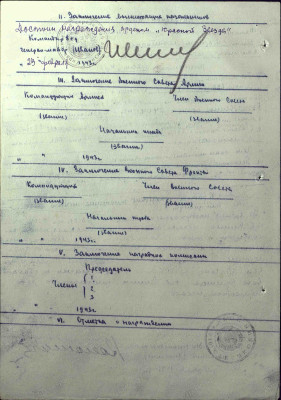 II. Заключение вышестоящих начальников
Достоин награждения орденом "Красной Звезда"
Командир
генерал-майор (Иванов)
"29" февраля 1943г.
III. Заключение Военного Совета Армии
Командующий Армией Член Военного Совета
(звание) (звание)
Начальник штаба
(звание)
" " 1943г.
IV. Заключение Военного Совета Фронта
Командующий Член Военного Совета
(звание) (звание)
Начальник штаба
(звание)
" " 1943г.
V. Заключение наградной комиссии
Председатель
Члены 1.
2.
3
" " 1943г.
VI. Отметка о награждении